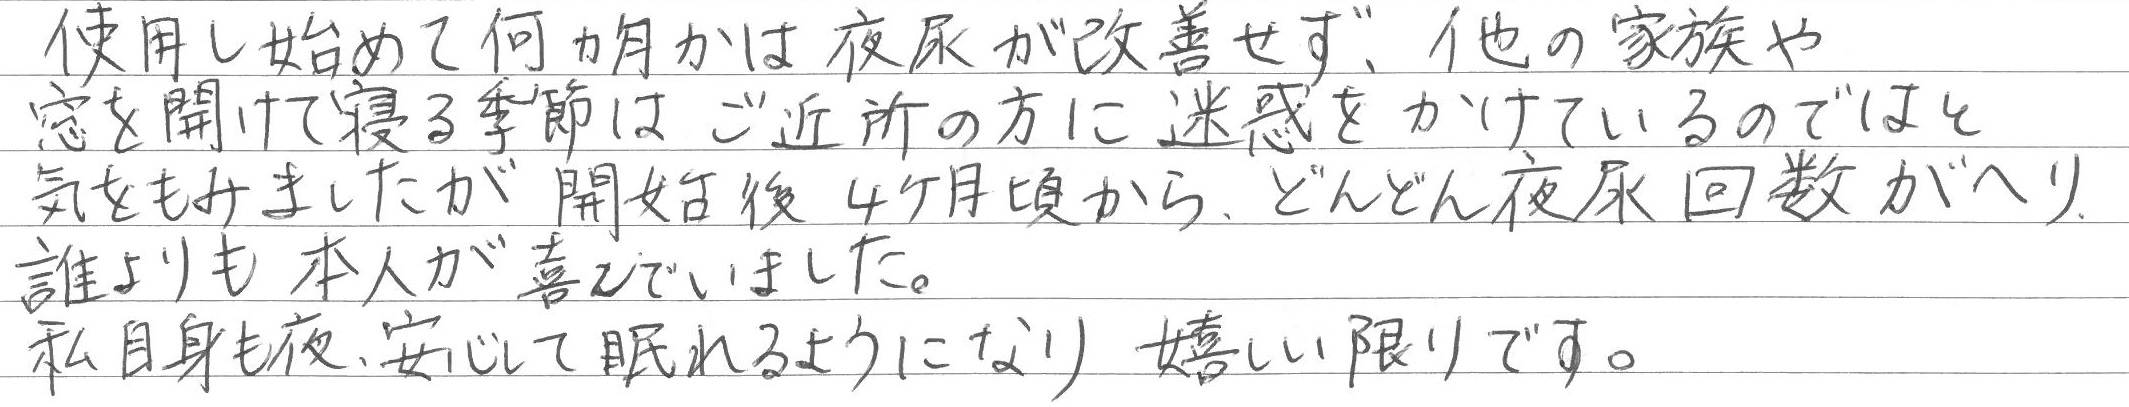 使用し始めて何ヵ月かは夜尿が改善せず、他の家族や
窓を開けて寝る季節はご近所の方に迷惑をかけているのではと
気をもみましたが開始後4ケ月頃から、どんどん夜尿回数がへり、
誰よりも本人が喜んでいました。
私自身も夜、安心して眠れるようになり嬉しい限りです。